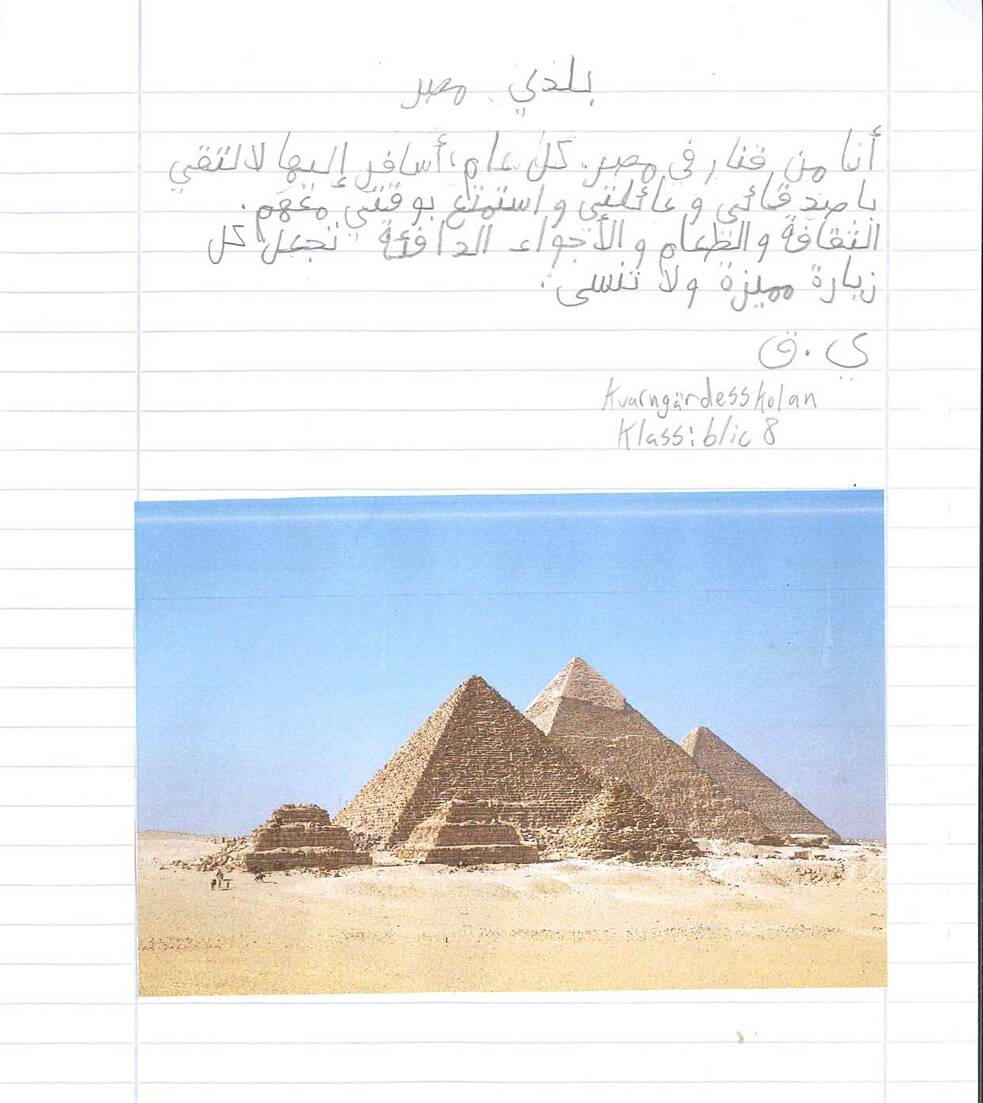 بلدي مصر
أنا من فنار في مصر. كل عام، أسافر إليها لالتقي
باصدقائي وعائلتي واستمتع بوقتي معهم.
الثقافة والطعام والأجواء الدافئة تجعل كل
زيارة مميزة ولا تنسى.
ي.ق
Kvarngärdesskolan
Klass: blic 8